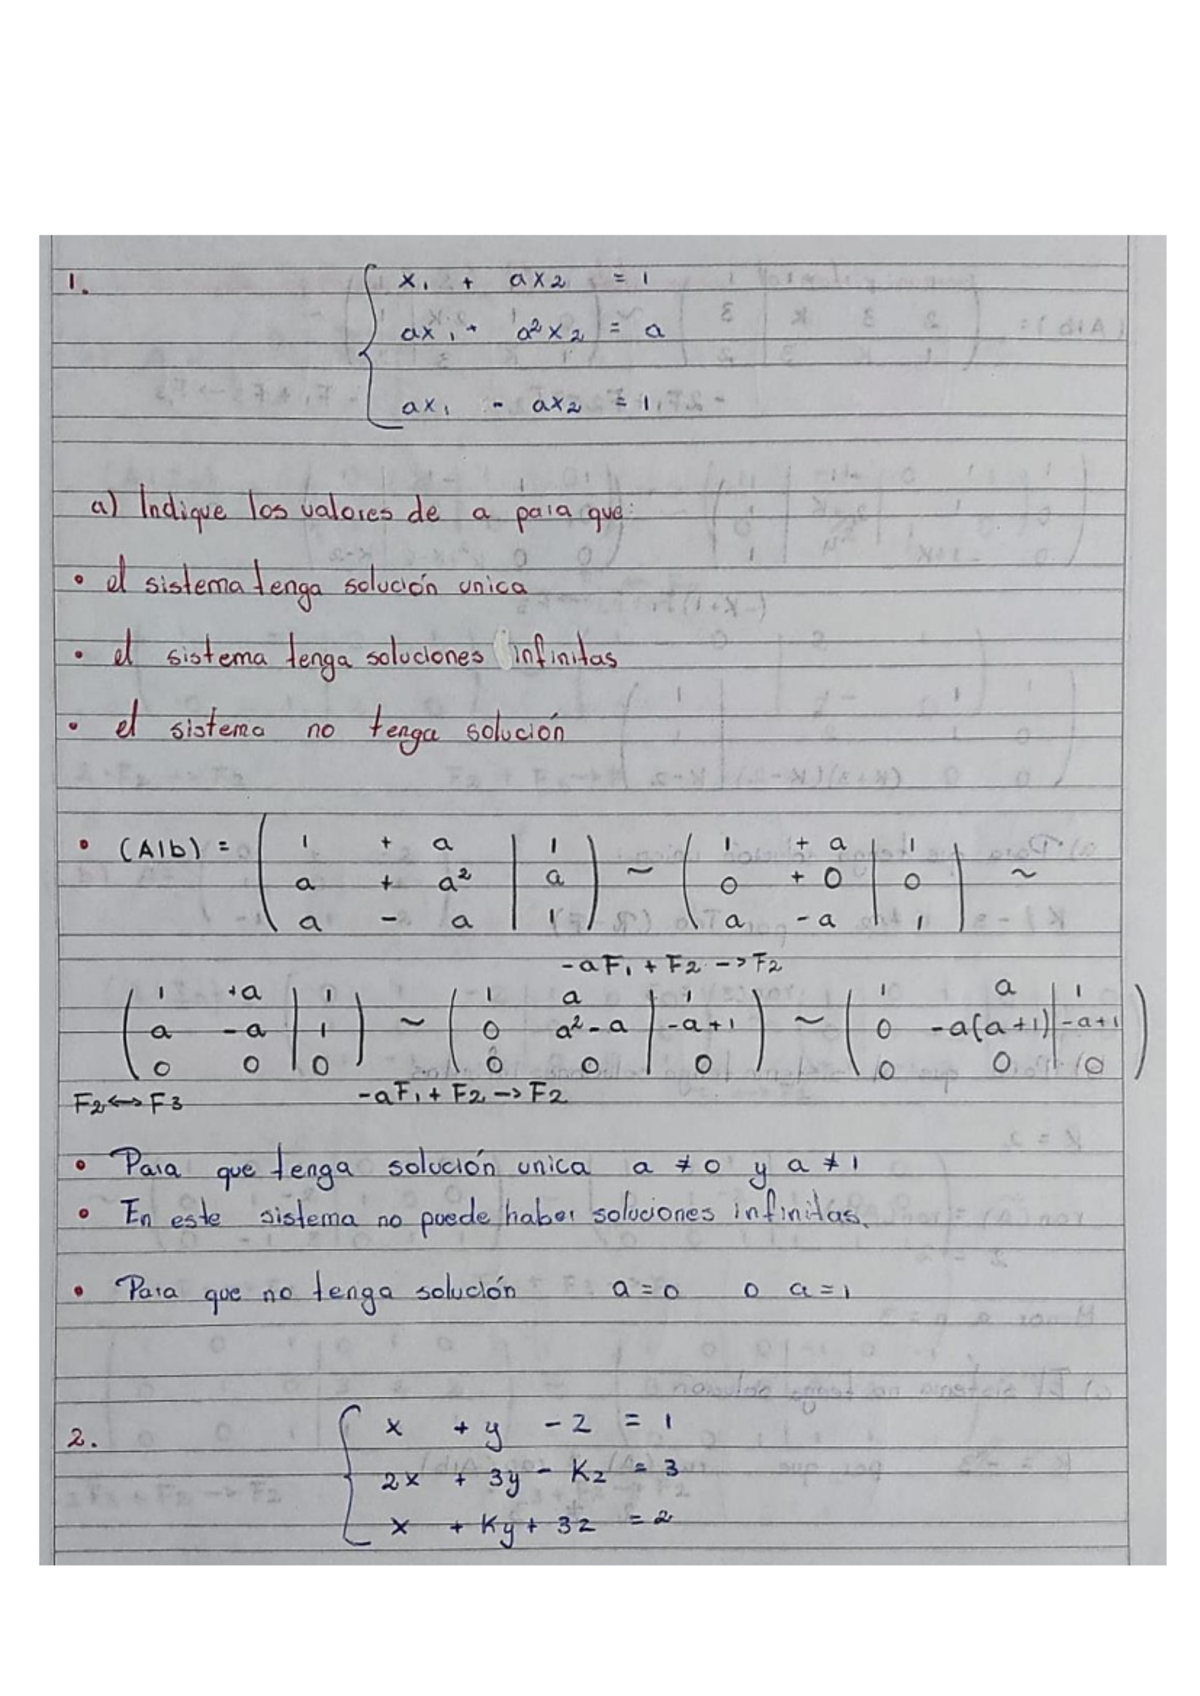 1.
x₁ + ax₂ = 1
ax₁ + a²x₂ = a
ax₁ - ax₂ = 1
a) Indique los valores de a para que:
• el sistema tenga solución unica
• el sistema tenga soluciones infinitas
• el sistema no tenga solución
• (A|b) = ( 1 + a | 1 ) ~ ( 1 + a | 1 ) ~
a + a² | a 0 + 0 | 0
a - a | 1 a - a | 1
-aF₁ + F₂ -> F₂
( 1 +a | 1 ) ~ ( 1 a | 1 ) ~ ( 1 a | 1 )
a -a | 1 0 a²-a | -a+1 0 -a(a+1) | -a+1
0 0 | 0 0 0 | 0 0 0 | 0
F₂ <-> F₃ -aF₁ + F₂ -> F₂
• Para que tenga solución unica a ≠ 0 y a ≠ 1
• En este sistema no puede haber soluciones infinitas.
• Para que no tenga solución a = 0 o a = 1
2.
x + y - z = 1
2x + 3y - Kz = 3
x + Ky + 3z = 2